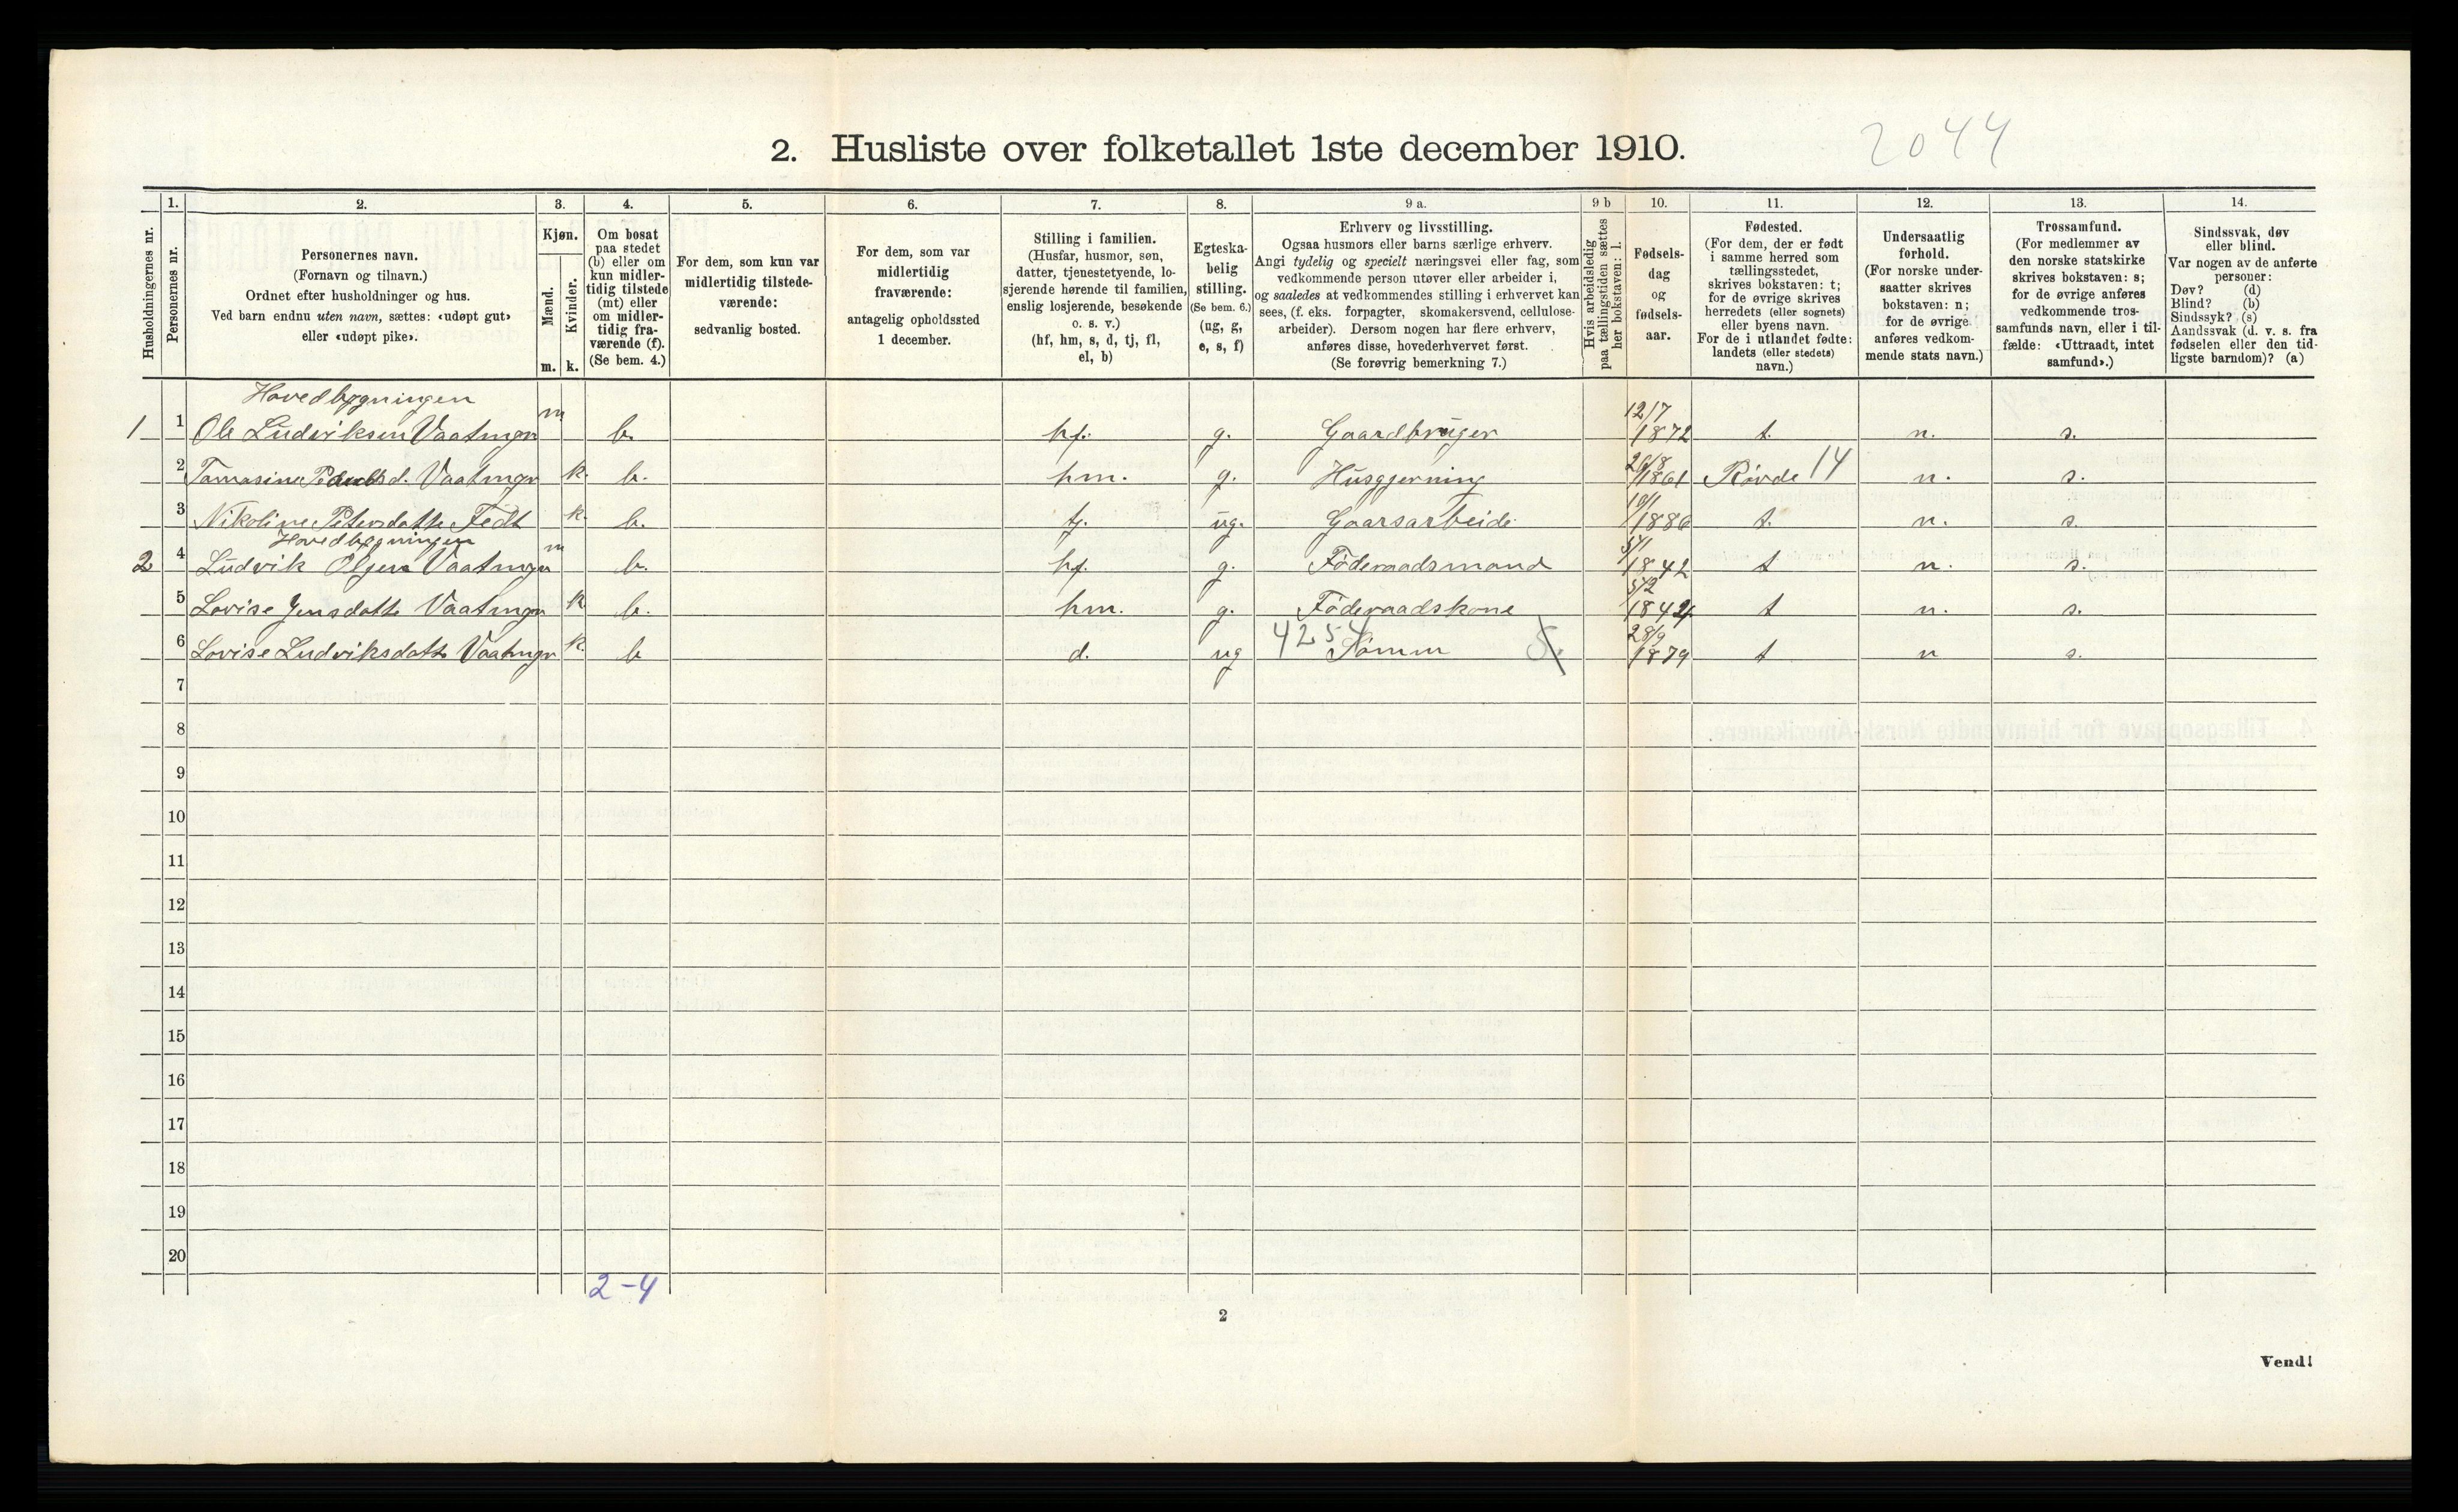 2. Husliste over folketallet 1ste december 1910.
2044
Husholdningernes nr.
1.
Personernes nr.
2.
Personernes navn.
(Fornavn og tilnavn.)
Ordnet efter husholdninger og hus.
Ved barn endnu uten navn, sættes: «udøpt gut»
eller «udøpt pike».
3.
Kjøn.
Mænd.
Kvinder.
m. k.
4.
Om bosat
paa stedet
(b) eller om
kun midler-
tidig tilstede
(mt) eller
om midler-
tidig fra-
værende (f).
(Se bem. 4.)
5.
For dem, som kun var
midlertidig tilstede-
værende:
sedvanlig bosted.
6.
For dem, som var
midlertidig
fraværende:
antagelig opholdssted
1 december.
7.
Stilling i familien.
(Husfar, husmor, søn,
datter, tjenestetyende, lo-
sjerende hørende til familien,
enslig losjerende, besøkende
o. s. v.)
(hf, hm, s, d, tj, fl,
el, b)
8.
Egteska-
belig
stilling.
(Se bem. 6.)
(ug, g,
e, s, f)
9 a.
Erhverv og livsstilling.
Ogsaa husmors eller barns særlige erhverv.
Angi tydelig og specielt næringsvei eller fag, som
vedkommende person utøver eller arbeider i,
og saaledes at vedkommendes stilling i erhvervet kan
sees, (f. eks. forpagter, skomakersvend, cellulose-
arbeider). Dersom nogen har flere erhverv,
anføres disse, hovederhvervet først.
(Se forøvrig bemerkning 7.)
9 b
Hvis arbeidsledig
paa tællingstiden sættes
her bokstaven: l.
10.
Fødsels-
dag
og
fødsels-
aar.
11.
Fødested.
(For dem, der er født
i samme herred som
tællingsstedet,
skrives bokstaven: t;
for de øvrige skrives
herredets (eller sognets)
eller byens navn.
For de i utlandet fødte:
landets (eller stedets)
navn.)
12.
Undersaatlig
forhold.
(For norske under-
saatter skrives
bokstaven: n;
for de øvrige
anføres vedkom-
mende stats navn.)
13.
Trossamfund.
(For medlemmer av
den norske statskirke
skrives bokstaven: s;
for de øvrige anføres
vedkommende tros-
samfunds navn, eller i til-
fælde: «Uttraadt, intet
samfund».)
14.
Sindssvak, døv
eller blind.
Var nogen av de anførte
personer:
Døv? (d)
Blind? (b)
Sindssyk? (s)
Aandssvak (d. v. s. fra
fødselen eller den tid-
ligste barndom)? (a)
Hovedbygningen
1 1 Ole Ludviksen Vaatmyr m b. hf. g. Gaardbruger 12/7 1872 t. n. s.
2 Tomasine d. Vaatmyr k. b. hm. g. Husgjerning 26/8 1861 Rovde 14 n. s.
3 Nikoline Petersdatte Fedt k. b. tj. ug. Gaarsarbeide 1886 t. n. s.
Hovedbygningen
2 4 Ludvik Olsen Vaatmyr m b. hf. g. Föderaadsmand 5/1 1842 t n. s.
5 Lovise Jensdatte Vaatmyr k b. hm. g. Föderaadskone 5/2 t n. s.
6 Lovise Ludviksdatte Vaatmyr k. b d. ug 4254 Sömm 28/9 1879 t n s.
7
8
9
10
11
12
13
14
15
16
17
18
19
20
2-4
2
Vend!